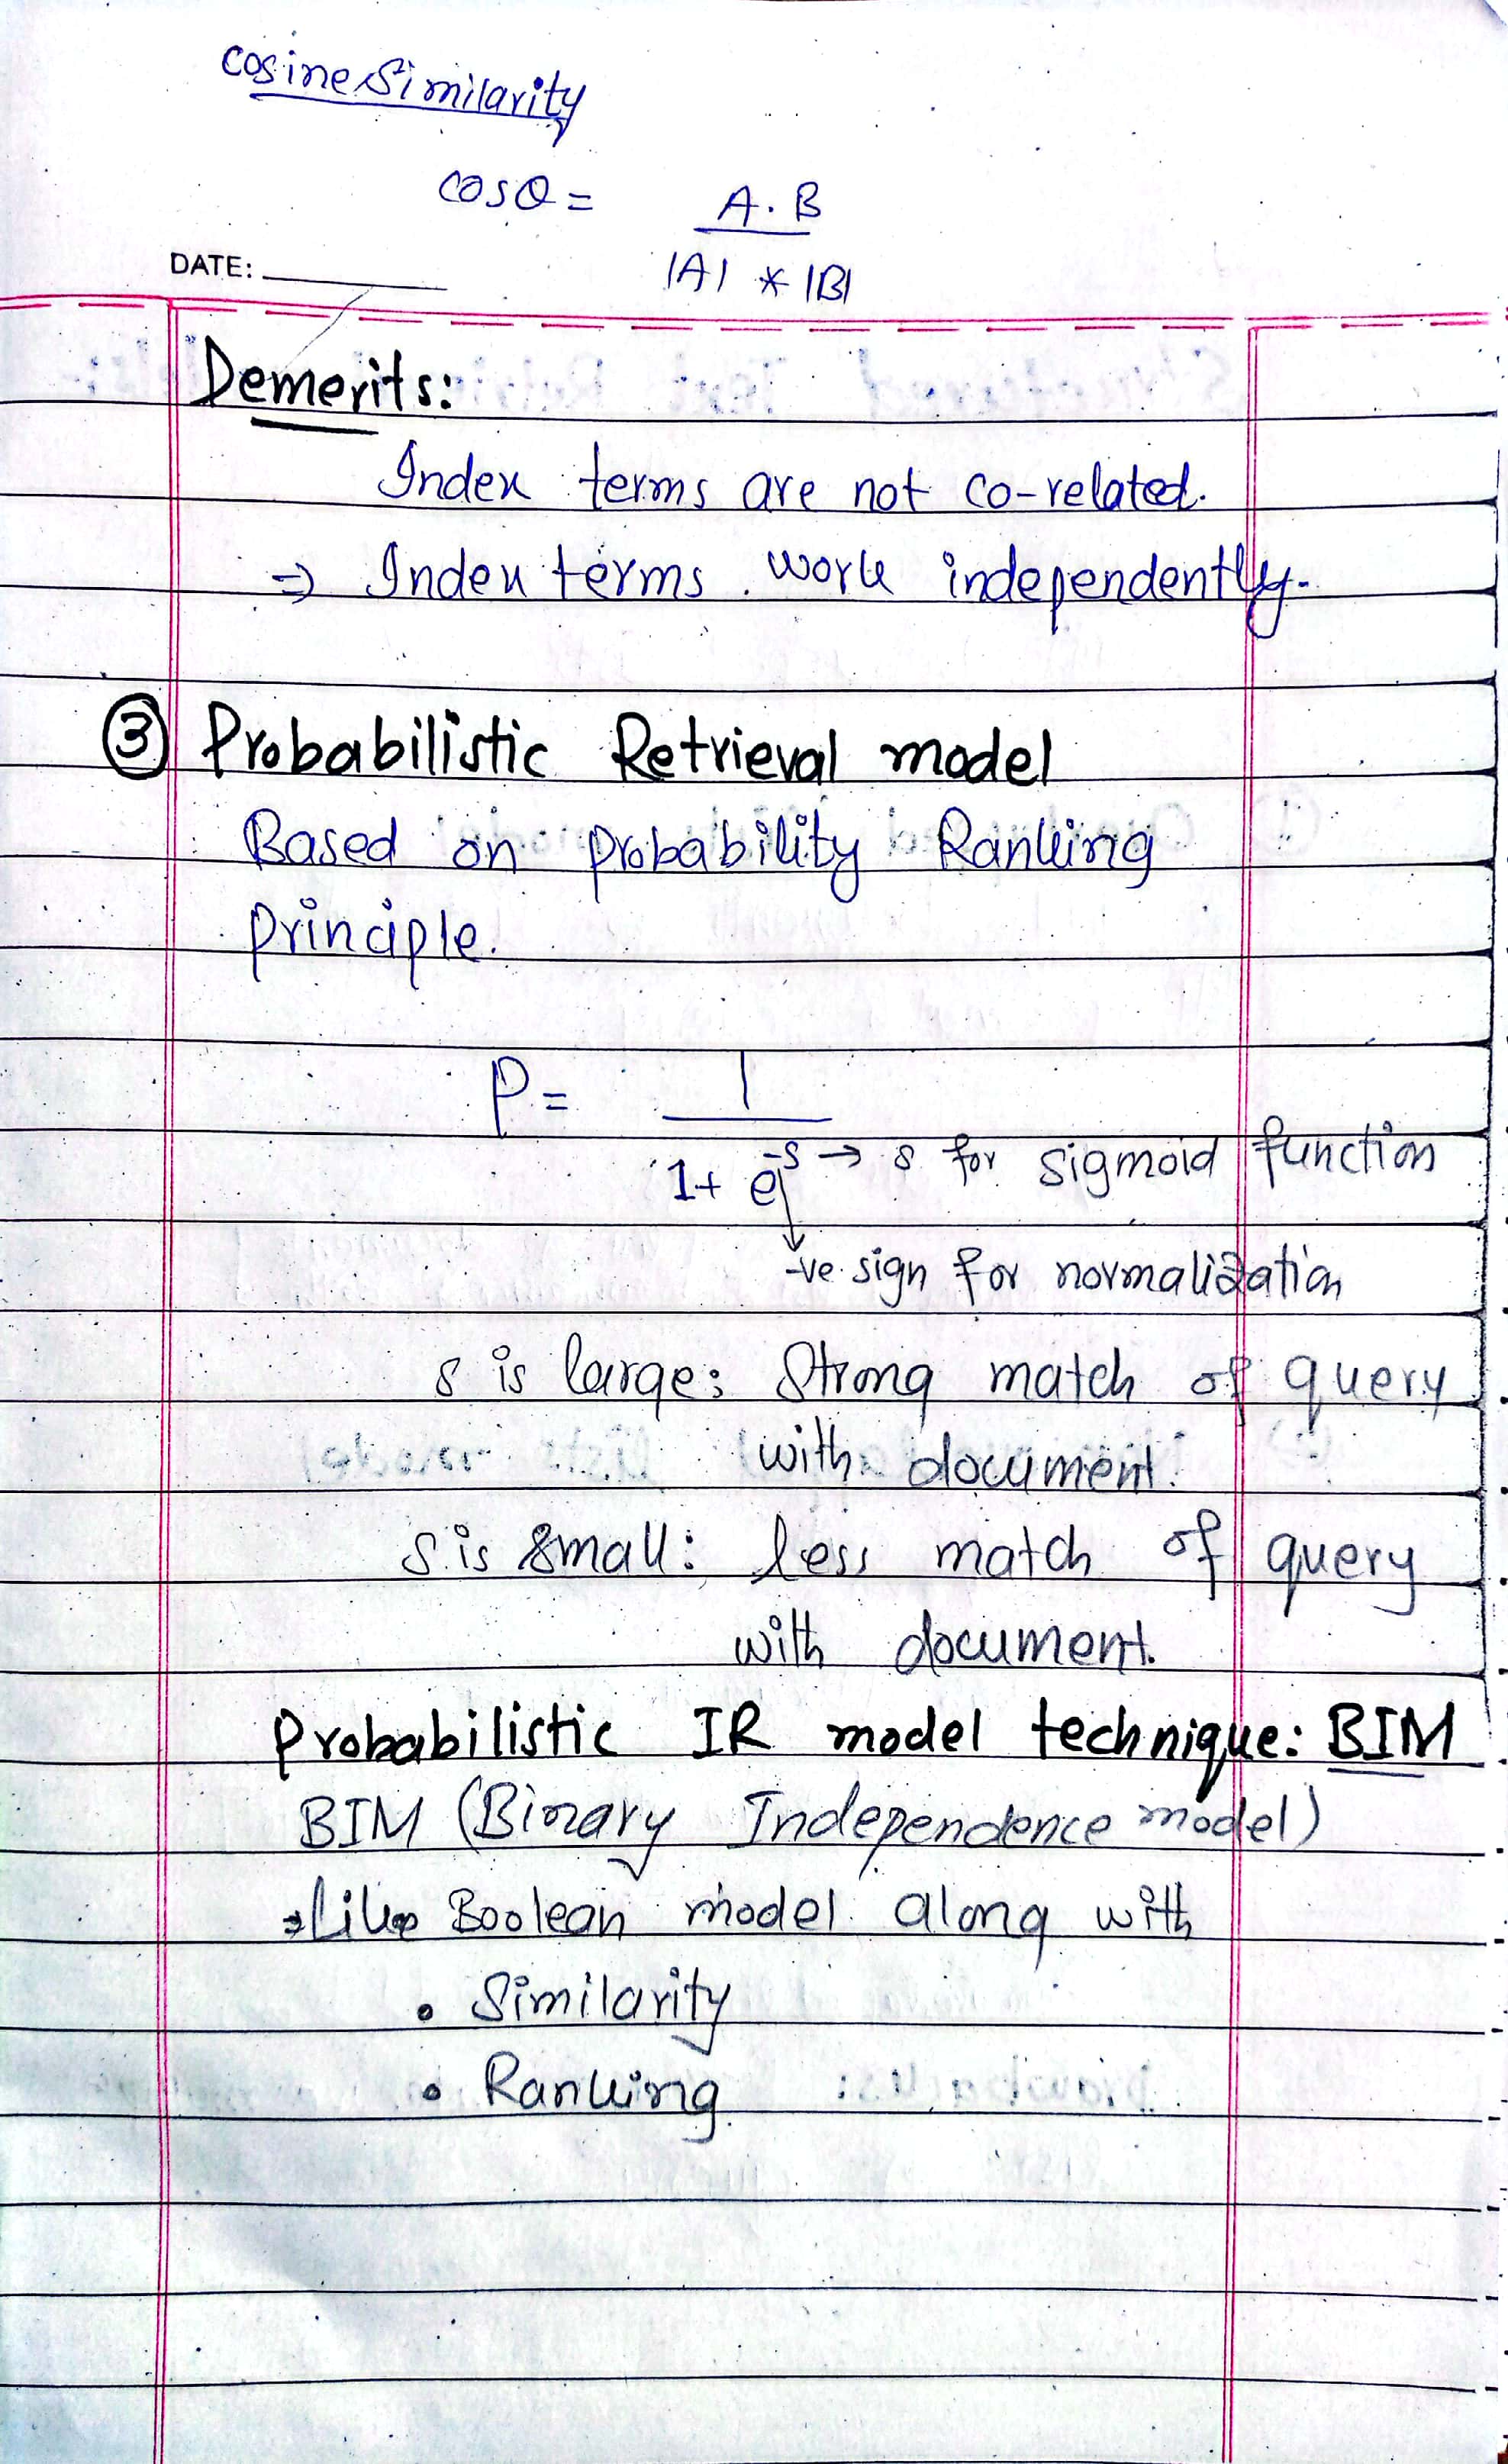 cosine Similarity
cosθ = A.B
|A| * |B|
DATE:
Demerits:
Index terms are not co-related.
⇒ Index terms work independently.
③ Probabilistic Retrieval model
Based on probability Ranking
principle.
P = 1
1+ e^-s → s for sigmoid function
-ve sign for normalization
s is large: Strong match of query
with document.
s is small: less match of query
with document.
Probabilistic IR model technique: BIM
BIM (Binary Independence model)
→ Like Boolean model along with
• Similarity
• Ranking